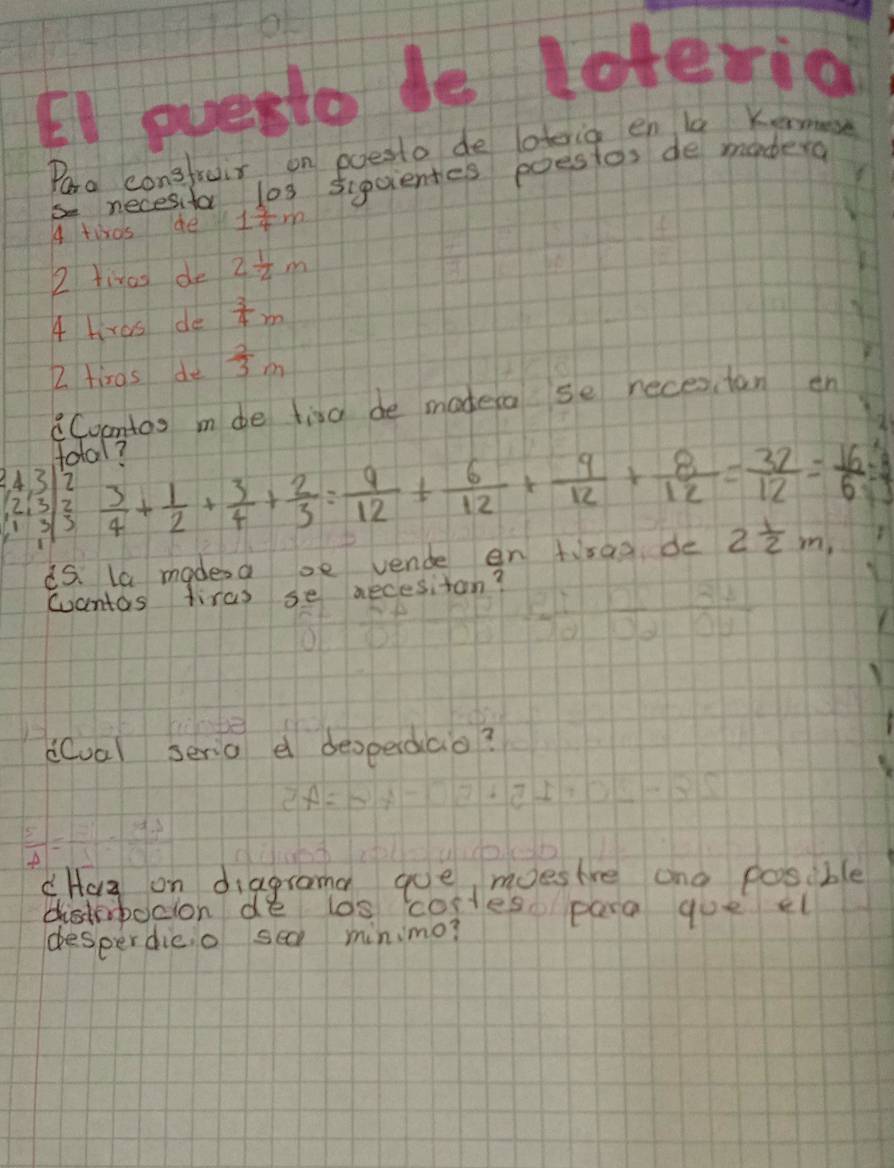 El puesto de loteria
Para construir on poesto de loteria en la Kermese
se necesita los siguientes poestos de madera
4 tiras de 1 3/4 m
2 tiras de 2 1/2 m
4 tiras de 3/4 m
2 tiras de 2/3 m
¿Cuantos m de tira de madera se necesitan en
total?
2 4, 3 | 2
1, 2, 3 | 2
1, 1 3 | 3
1
3/4 + 1/2 + 3/4 + 2/3 = 9/12 + 6/12 + 9/12 + 8/12 = 32/12 = 16/6 =
¿S. la madera se vende en tiras de 2 1/2 m,
cuantas tiras se necesitan?
¿Cual seria el desperdicio?
¿Haz on diagrama que moestre una posible
distribocion de los cortes para que el
desperdicio sea minimo?